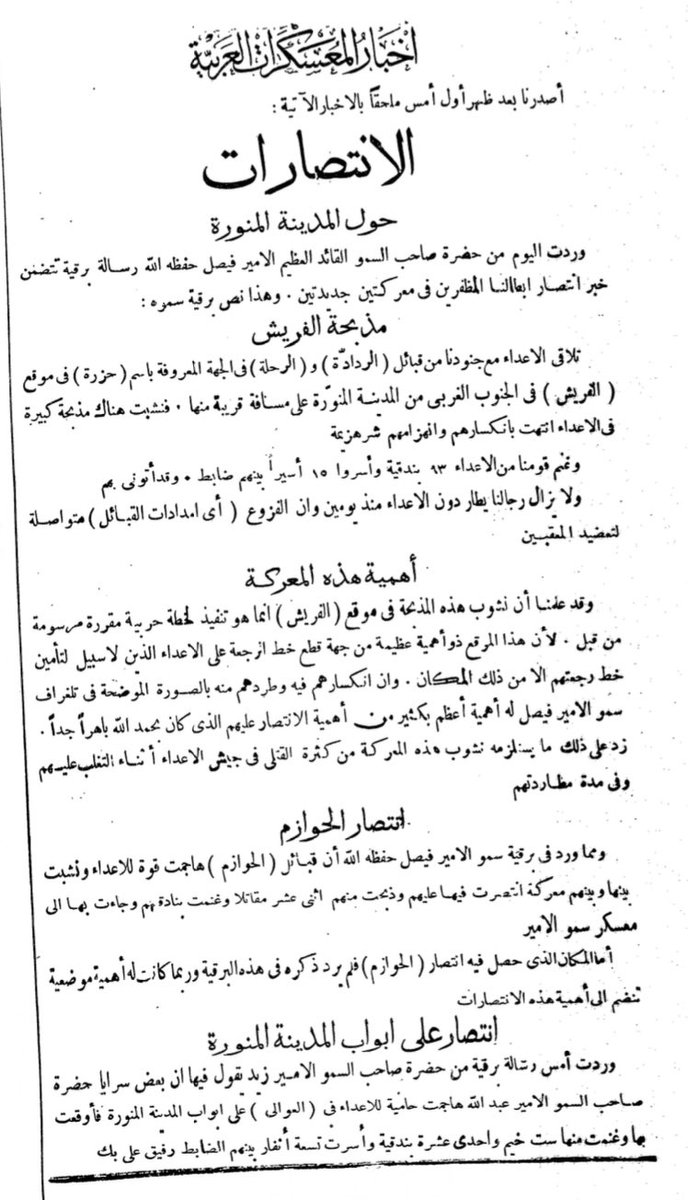 اخبار المعسكرات العربية
أصدرنا بعد ظهر أول أمس ملحقاً بالاخبار الآتية :
الانتصارات
حول المدينة المنورة
وردت اليوم من حضرة صاحب السمو القائد العظيم الامير فيصل حفظه الله رسالة برقية تتضمن
خبر انتصار ابطالنا المظفرين فى معركتين جديدتين . وهذا نص برقية سموه :
مذبحة الفريش
تلاقى الاعداء مع جنودنا من قبائل ( الردادّة ) و ( الرحلة ) فى الجهة المعروفة باسم ( حزرة ) فى موقع
( الفريش ) فى الجنوب الغربى من المدينة المنوّرة على مسافة قريبة منها . فنشبت هناك مذبحة كبيرة
فى الاعداء انتهت بانكسارهم وانهزامهم شر هزيمة
وغنم قومنا من الاعداء ٩٣ بندقية وأسروا ١٥ أسيراً بينهم ضابط . وقد أتونى بهم
ولا يزال رجالنا يطاردون الاعداء منذ يومين وان الفزوع ( أى امدادات القبائل ) متواصلة
لتعضيد المعقبين
أهمية هذه المعركة
وقد علمنا أن نشوب هذه المذبحة فى موقع ( الفريش ) انما هو تنفيذ لخطة حربية مقررة مرسومة
من قبل . لأن هذا الموقع ذو أهمية عظيمة من جهة قطع خط الرجعة على الاعداء الذين لاسبيل لتأمين
خط رجعتهم الا من ذلك المكان . وان انكسارهم فيه وطردهم منه بالصورة الموضحة فى تلغراف
سمو الامير فيصل له أهمية أعظم بكثير من أهمية الانتصار عليهم الذى كان بحمد الله باهراً جداً .
زد على ذلك ما يستلزمه نشوب هذه المعركة من كثرة القتلى فى جيش الاعداء أثناء التغلب عليهم
وفى مدة مطاردتهم
انتصار الحوازم
ومما ورد فى برقية سمو الامير فيصل حفظه الله أن قبائل ( الحوازم ) هاجمت قوة للاعداء ونشبت
بينها وبينهم معركة انتصرت فيها عليهم وذبحت منهم اثنى عشر مقاتلا وغنمت بنادقهم وجاءت بها الى
معسكر سمو الامير
أما المكان الذى حصل فيه انتصار ( الحوازم ) فلم يرد ذكره فى هذه البرقية وربما كانت له أهمية موضعية
تنضم الى أهمية هذه الانتصارات
انتصار على ابواب المدينة المنورة
وردت أمس رسالة برقية من حضرة صاحب السمو الامير زيد يقول فيها ان بعض سرايا حضرة
صاحب السمو الامير عبد الله هاجمت حامية للاعداء فى ( العوالى ) على ابواب المدينة المنورة فأوقعت
بها وغنمت منها ست خيم واحدى عشرة بندقية وأسرت تسعة أنفار بينهم الضابط رفيق على بك